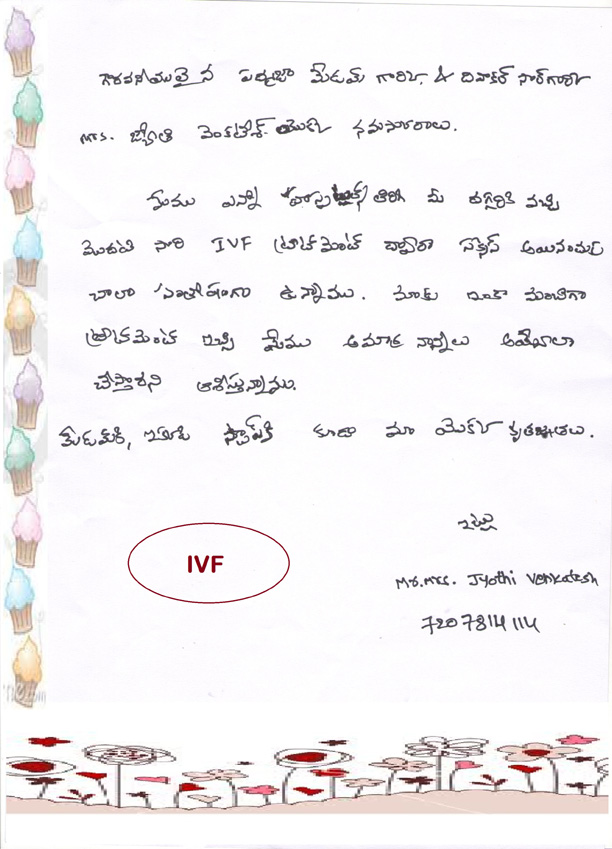 గౌరవనీయులైన పద్మజా మేడమ్ గారికి, & దివాకర్ సార్ గారికి
Mrs. జ్యోతి వెంకటేశ్ యొక్క నమస్కారాలు.
మేము ఎన్నో హాస్పిటల్స్ తిరిగి మీ దగ్గరికి వచ్చి
మొదటి సారి IVF ట్రీట్మెంట్ ద్వారా సక్సెస్ అయినందుకు
చాలా సంతోషంగా ఉన్నాము. మాకు ఇంకా మంచిగా
ట్రీట్మెంట్ ఇచ్చి మేము అమ్మా నాన్నలు అయ్యేలా
చేస్తారని ఆశిస్తున్నాము.
మేడమ్‌కి, స్టాఫ్‌కి కూడా మా యొక్క కృతజ్ఞతలు.
ఇట్లు
IVF
Mr.Mrs. Jyothi Venkatesh
7207814114